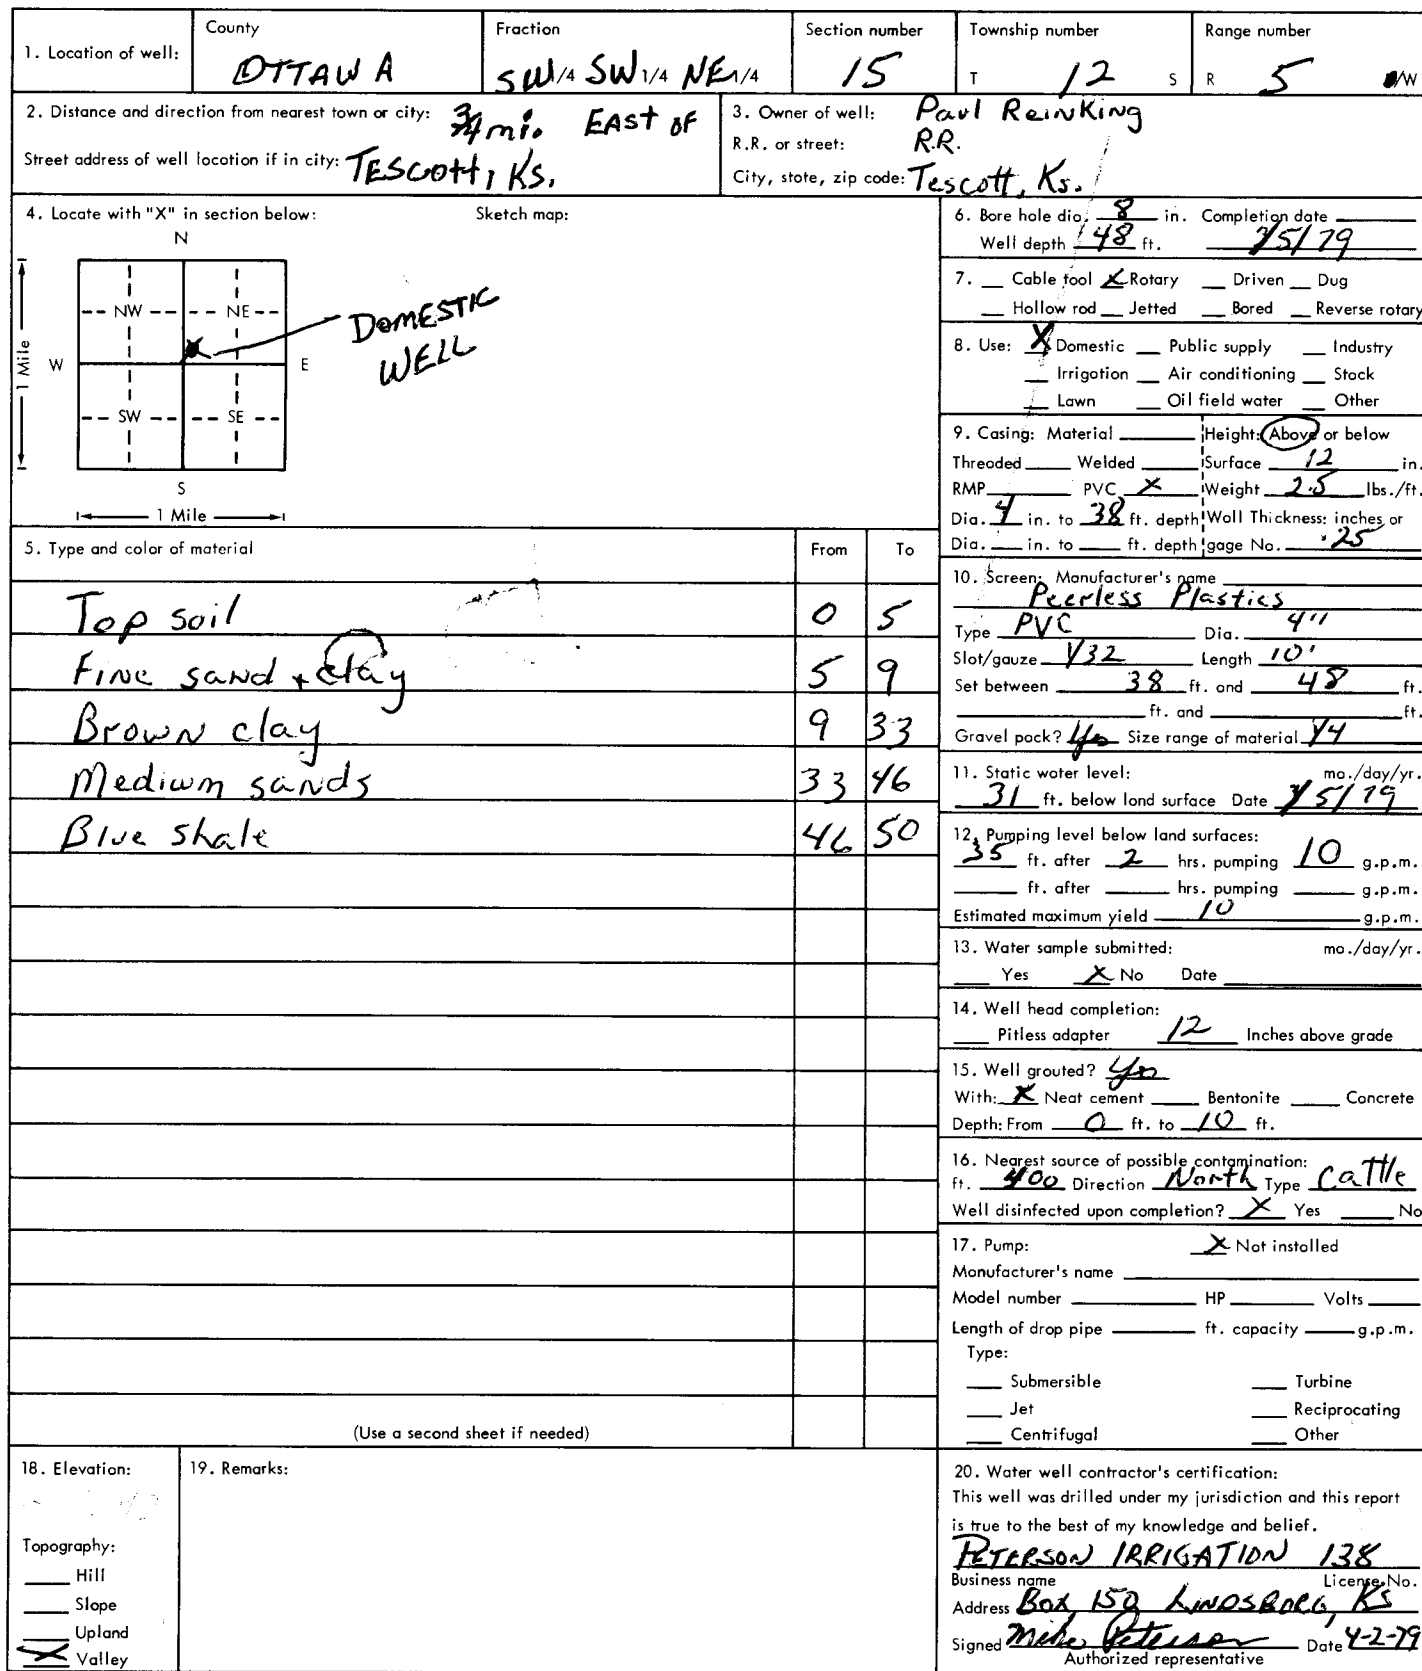 1. Location of well:
County
OTTAWA
Fraction
SW 1/4 SW 1/4 NE 1/4
Section number
15
Township number
T 12 S
Range number
R 5 /W
2. Distance and direction from nearest town or city: 3/4 mi. EAST OF
Street address of well location if in city: TESCOTT, KS.
3. Owner of well: Paul Reinking
R.R. or street: R.R.
City, state, zip code: Tescott, Ks.
4. Locate with "X" in section below:
Sketch map:
N
NW NE
W E
SW SE
S
1 Mile
1 Mile
DOMESTIC
WELL
5. Type and color of material From To
Top soil 0 5
Fine sand + clay 5 9
Brown clay 9 33
Medium sands 33 46
Blue shale 46 50
(Use a second sheet if needed)
6. Bore hole dia. 8 in. Completion date
Well depth 48 ft. /5/79
7. Cable tool X Rotary Driven Dug
Hollow rod Jetted Bored Reverse rotary
8. Use: X Domestic Public supply Industry
Irrigation Air conditioning Stock
Lawn Oil field water Other
9. Casing: Material Height: Above or below
Threaded Welded Surface 12 in.
RMP PVC X Weight 2.5 lbs./ft.
Dia. 4 in. to 38 ft. depth Wall Thickness: inches or
Dia. in. to ft. depth gage No. .25
10. Screen: Manufacturer's name
Peerless Plastics
Type PVC Dia. 4"
Slot/gauze 1/32 Length 10'
Set between 38 ft. and 48 ft.
ft. and ft.
Gravel pack? Yes Size range of material 1/4
11. Static water level: mo./day/yr.
31 ft. below land surface Date /5/79
12. Pumping level below land surfaces:
35 ft. after 2 hrs. pumping 10 g.p.m.
ft. after hrs. pumping g.p.m.
Estimated maximum yield 10 g.p.m.
13. Water sample submitted: mo./day/yr.
Yes X No Date
14. Well head completion:
Pitless adapter 12 Inches above grade
15. Well grouted? Yes
With: X Neat cement Bentonite Concrete
Depth: From 0 ft. to 10 ft.
16. Nearest source of possible contamination:
ft. 400 Direction North Type Cattle
Well disinfected upon completion? X Yes No
17. Pump: X Not installed
Manufacturer's name
Model number HP Volts
Length of drop pipe ft. capacity g.p.m.
Type:
Submersible Turbine
Jet Reciprocating
Centrifugal Other
18. Elevation:
Topography:
Hill
Slope
Upland
X Valley
19. Remarks:
20. Water well contractor's certification:
This well was drilled under my jurisdiction and this report
is true to the best of my knowledge and belief.
PETERSON IRRIGATION 138
Business name License No.
Address Box 150 LINDSBORG, KS
Signed Mike Peterson Date 4-2-79
Authorized representative